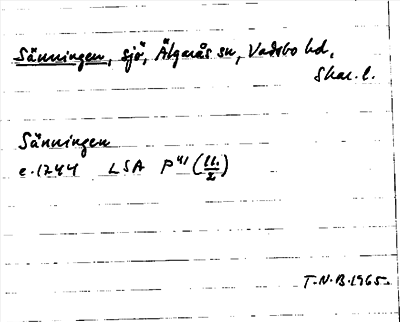 Sänningen, sjö, Älgarås sn, Vadsbo hd,
Skar. l.
Sänningen
c. 1744 LSA P 41 (11./2)
T.N.B. 1965.